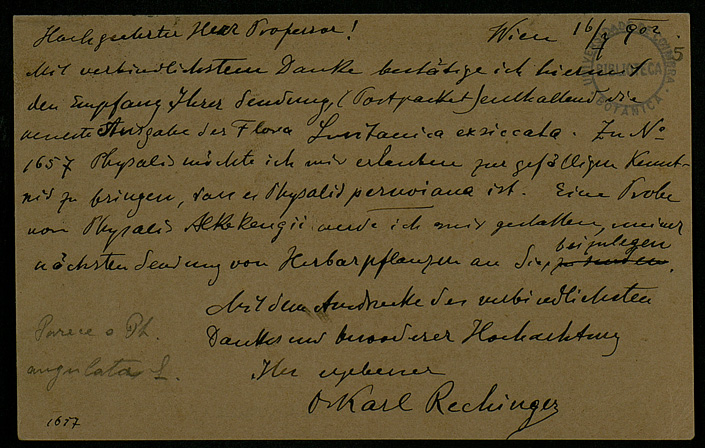 Hochgeehrter Herr Professor! Wien 16/I 902.
5
UNIVERSIDADE DE COIMBRA
BIBLIOTECA
BOTANICA
Mit verbindlichstem Danke bestätige ich hiemit
den Empfang Ihrer Sendung, (Postpacket) enthaltend die
neueste Ausgabe der Flora Lusitanica exsiccata. Zu No
1657 Physalis möchte ich mir erlauben zur gefälligen Kennt-
nis zu bringen, dass es Physalis peruviana ist. Eine Probe
von Physalis Alkekengii werde ich mir gestatten, meiner
nächsten Sendung von Herbarpflanzen an Sie beizulegen
zu senden.
Mit dem Ausdrucke des verbindlichsten
Dankes und besonderer Hochachtung
Ihr ergebener
Dr Karl Rechinger
Parece o Ph.
angulata L.
1657